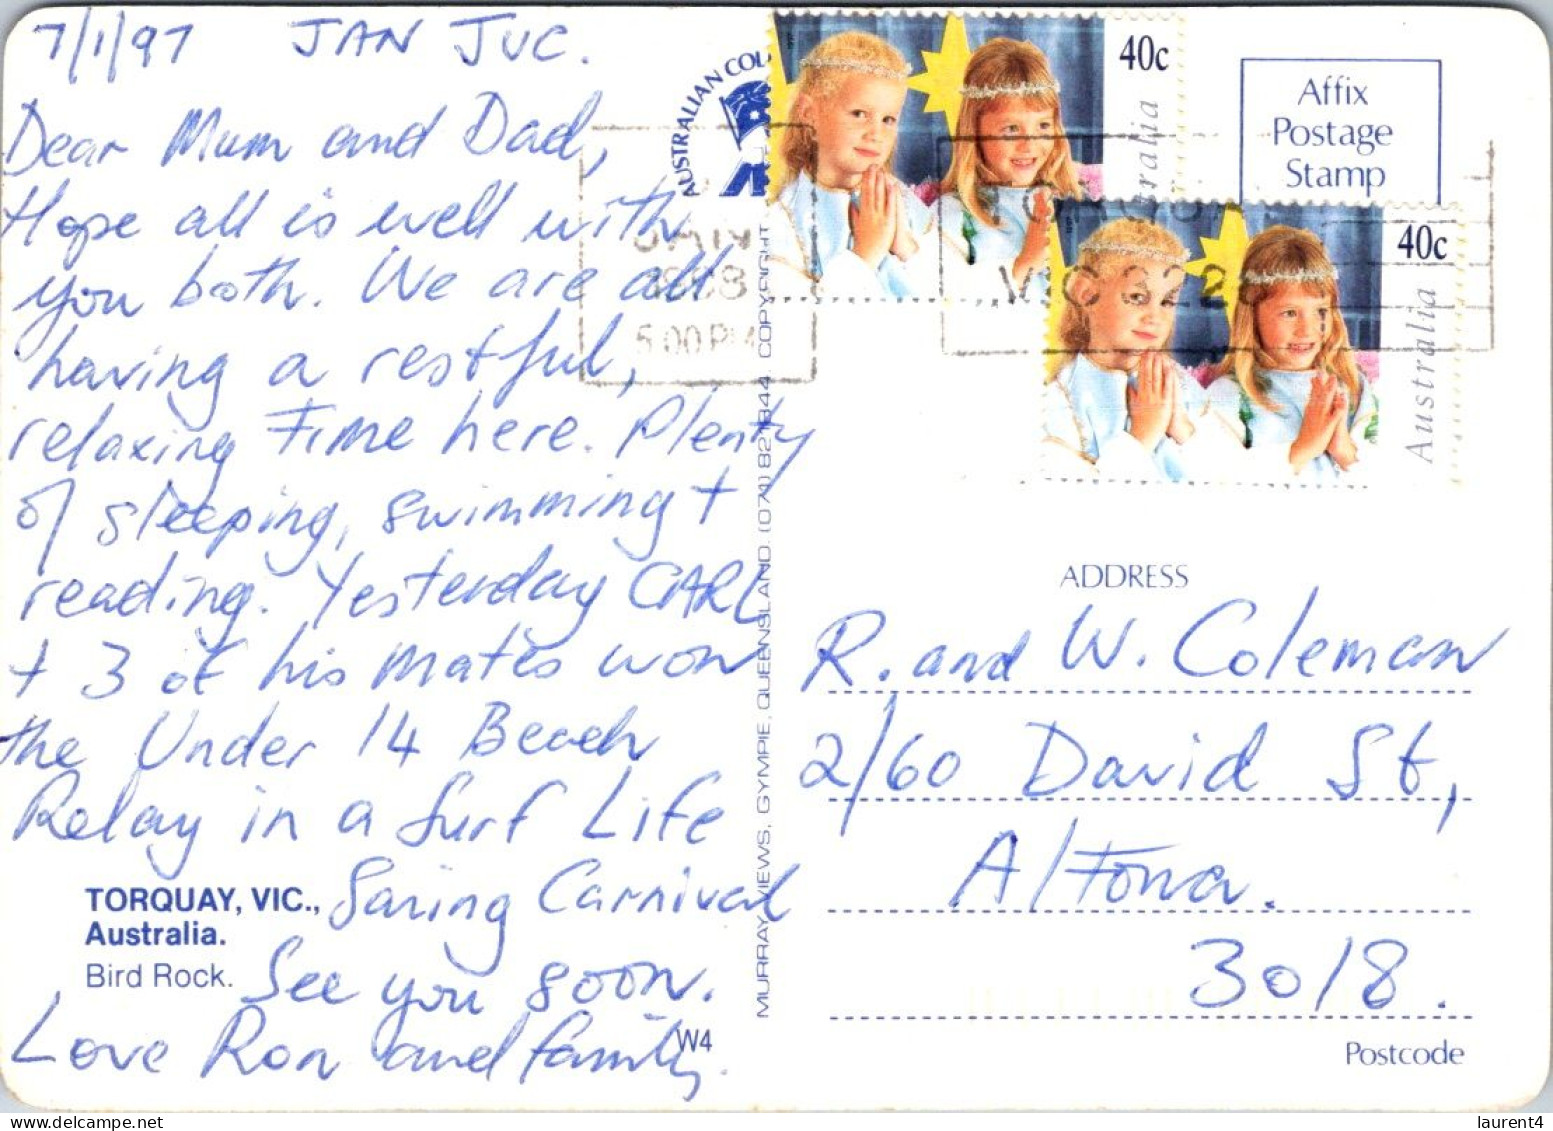 7/1/97 JAN JUC.
Dear Mum and Dad,
Hope all is well with
you both. We are all
having a restful,
relaxing Time here. Plenty
of sleeping, swimming +
reading. Yesterday CARL
+ 3 of his mates won
the Under 14 Beach
Relay in a Surf Life
Saving Carnival
See you soon.
Love Ron and family.
TORQUAY, VIC.,
Australia.
Bird Rock.
W4
AUSTRALIAN COL
MURRAY VIEWS, GYMPIE, QUEENSLAND. (071) 82 1844. COPYRIGHT
JAN
1998
5.00 PM
VIC 322
40c
Australia
40c
Australia
Affix
Postage
Stamp
ADDRESS
R. and W. Coleman
2/60 David St,
Altona.
3018.
Postcode
laurent4